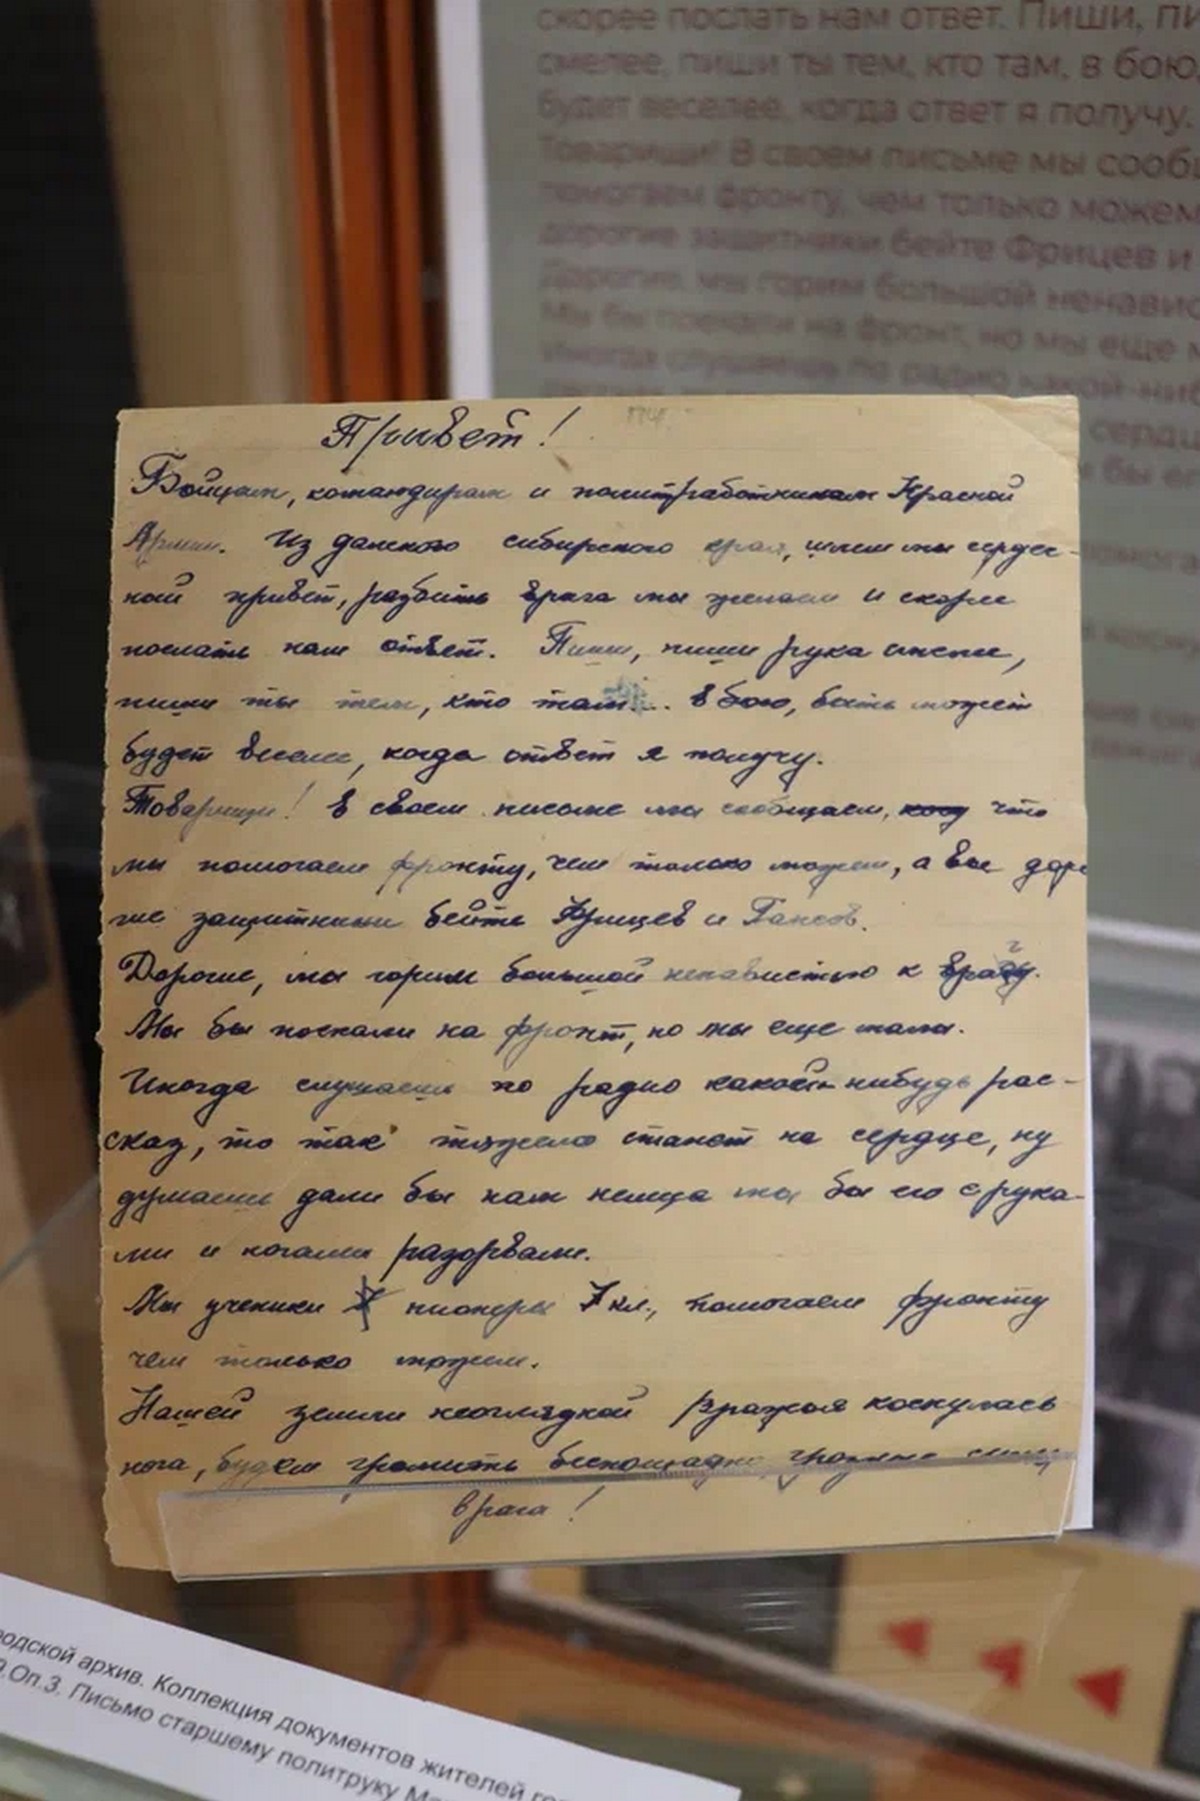 скорее послать нам ответ. Пиши, пи
смелее, пиши ты тем, кто там, в бою,
будет веселее, когда ответ я получу.
Товарищи! В своем письме мы сооб
помогаем фронту, чем только можем
дорогие защитники бейте Фрицев и
Дорогие, мы горим большой ненавис
Мы бы поехали на фронт, но мы еще м
Иногда слушаешь по радио какой-ниб
сердц
бы ег
Привет!
Бойцам, командирам и политработникам Красной
Армии. Из далекого сибирского края, шлем мы сердеч-
ный привет, разбить врага мы желаем и скорее
послать нам ответ. Пиши, пиши рука смелее,
пиши ты тем, кто там... в бою, быть может
будет веселее, когда ответ я получу.
Товарищи! В своем письме мы сообщаем, что
мы помогаем фронту, чем только можем, а вы доро
гие защитники бейте Фрицев и Гансов.
Дорогие, мы горим большой ненавистью к врагу.
Мы бы поехали на фронт, но мы еще малы.
Иногда слушаешь по радио какой нибудь рас-
сказ, то так тяжело станет на сердце, ну
думаешь дали бы нам немца мы бы его с рука-
ми и ногами разорвали.
Мы ученики пионеры 7 кл., помогаем фронту
чем только можем.
Нашей земли неоглядной вражья коснулась
нога, будем громить беспощадно, грозную силу
врага!
одской архив. Коллекция документов жителей го
Оп.3. Письмо старшему политруку М